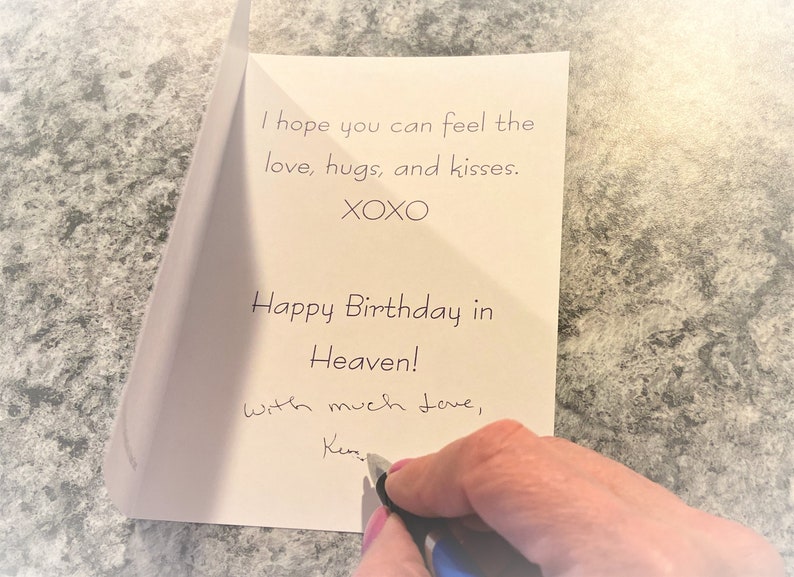 I hope you can feel the
love, hugs, and kisses.
XOXO
Happy Birthday in
Heaven!
with much Love,